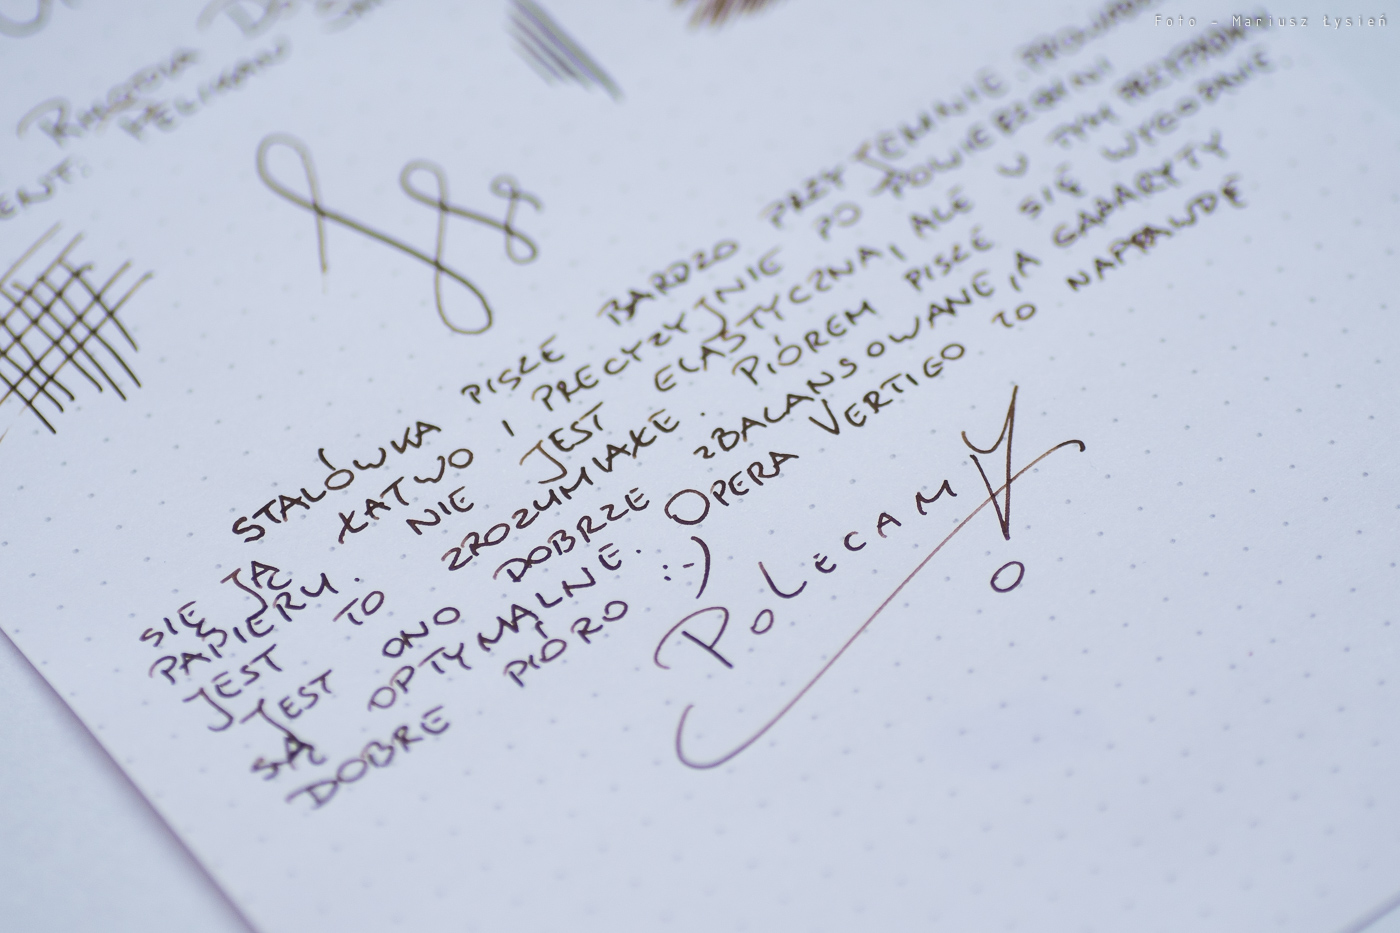 Foto - Mariusz Łysień
STALÓWKA PISZE BARDZO PRZYJEMNIE. PROWADZI
SIĘ JĄ ŁATWO I PRECYZYJNIE PO POWIERZCHNI
PAPIERU. NIE JEST ELASTYCZNA, ALE W TYM PRZYPADKU
JEST TO ZROZUMIAŁE. PIÓREM PISZE SIĘ WYGODNIE.
JEST ONO DOBRZE ZBALANSOWANE, A GABARYTY
SĄ OPTYMALNE. OPERA VERTIGO TO NAPRAWDĘ
DOBRE PIÓRO :-)
POLECAM!